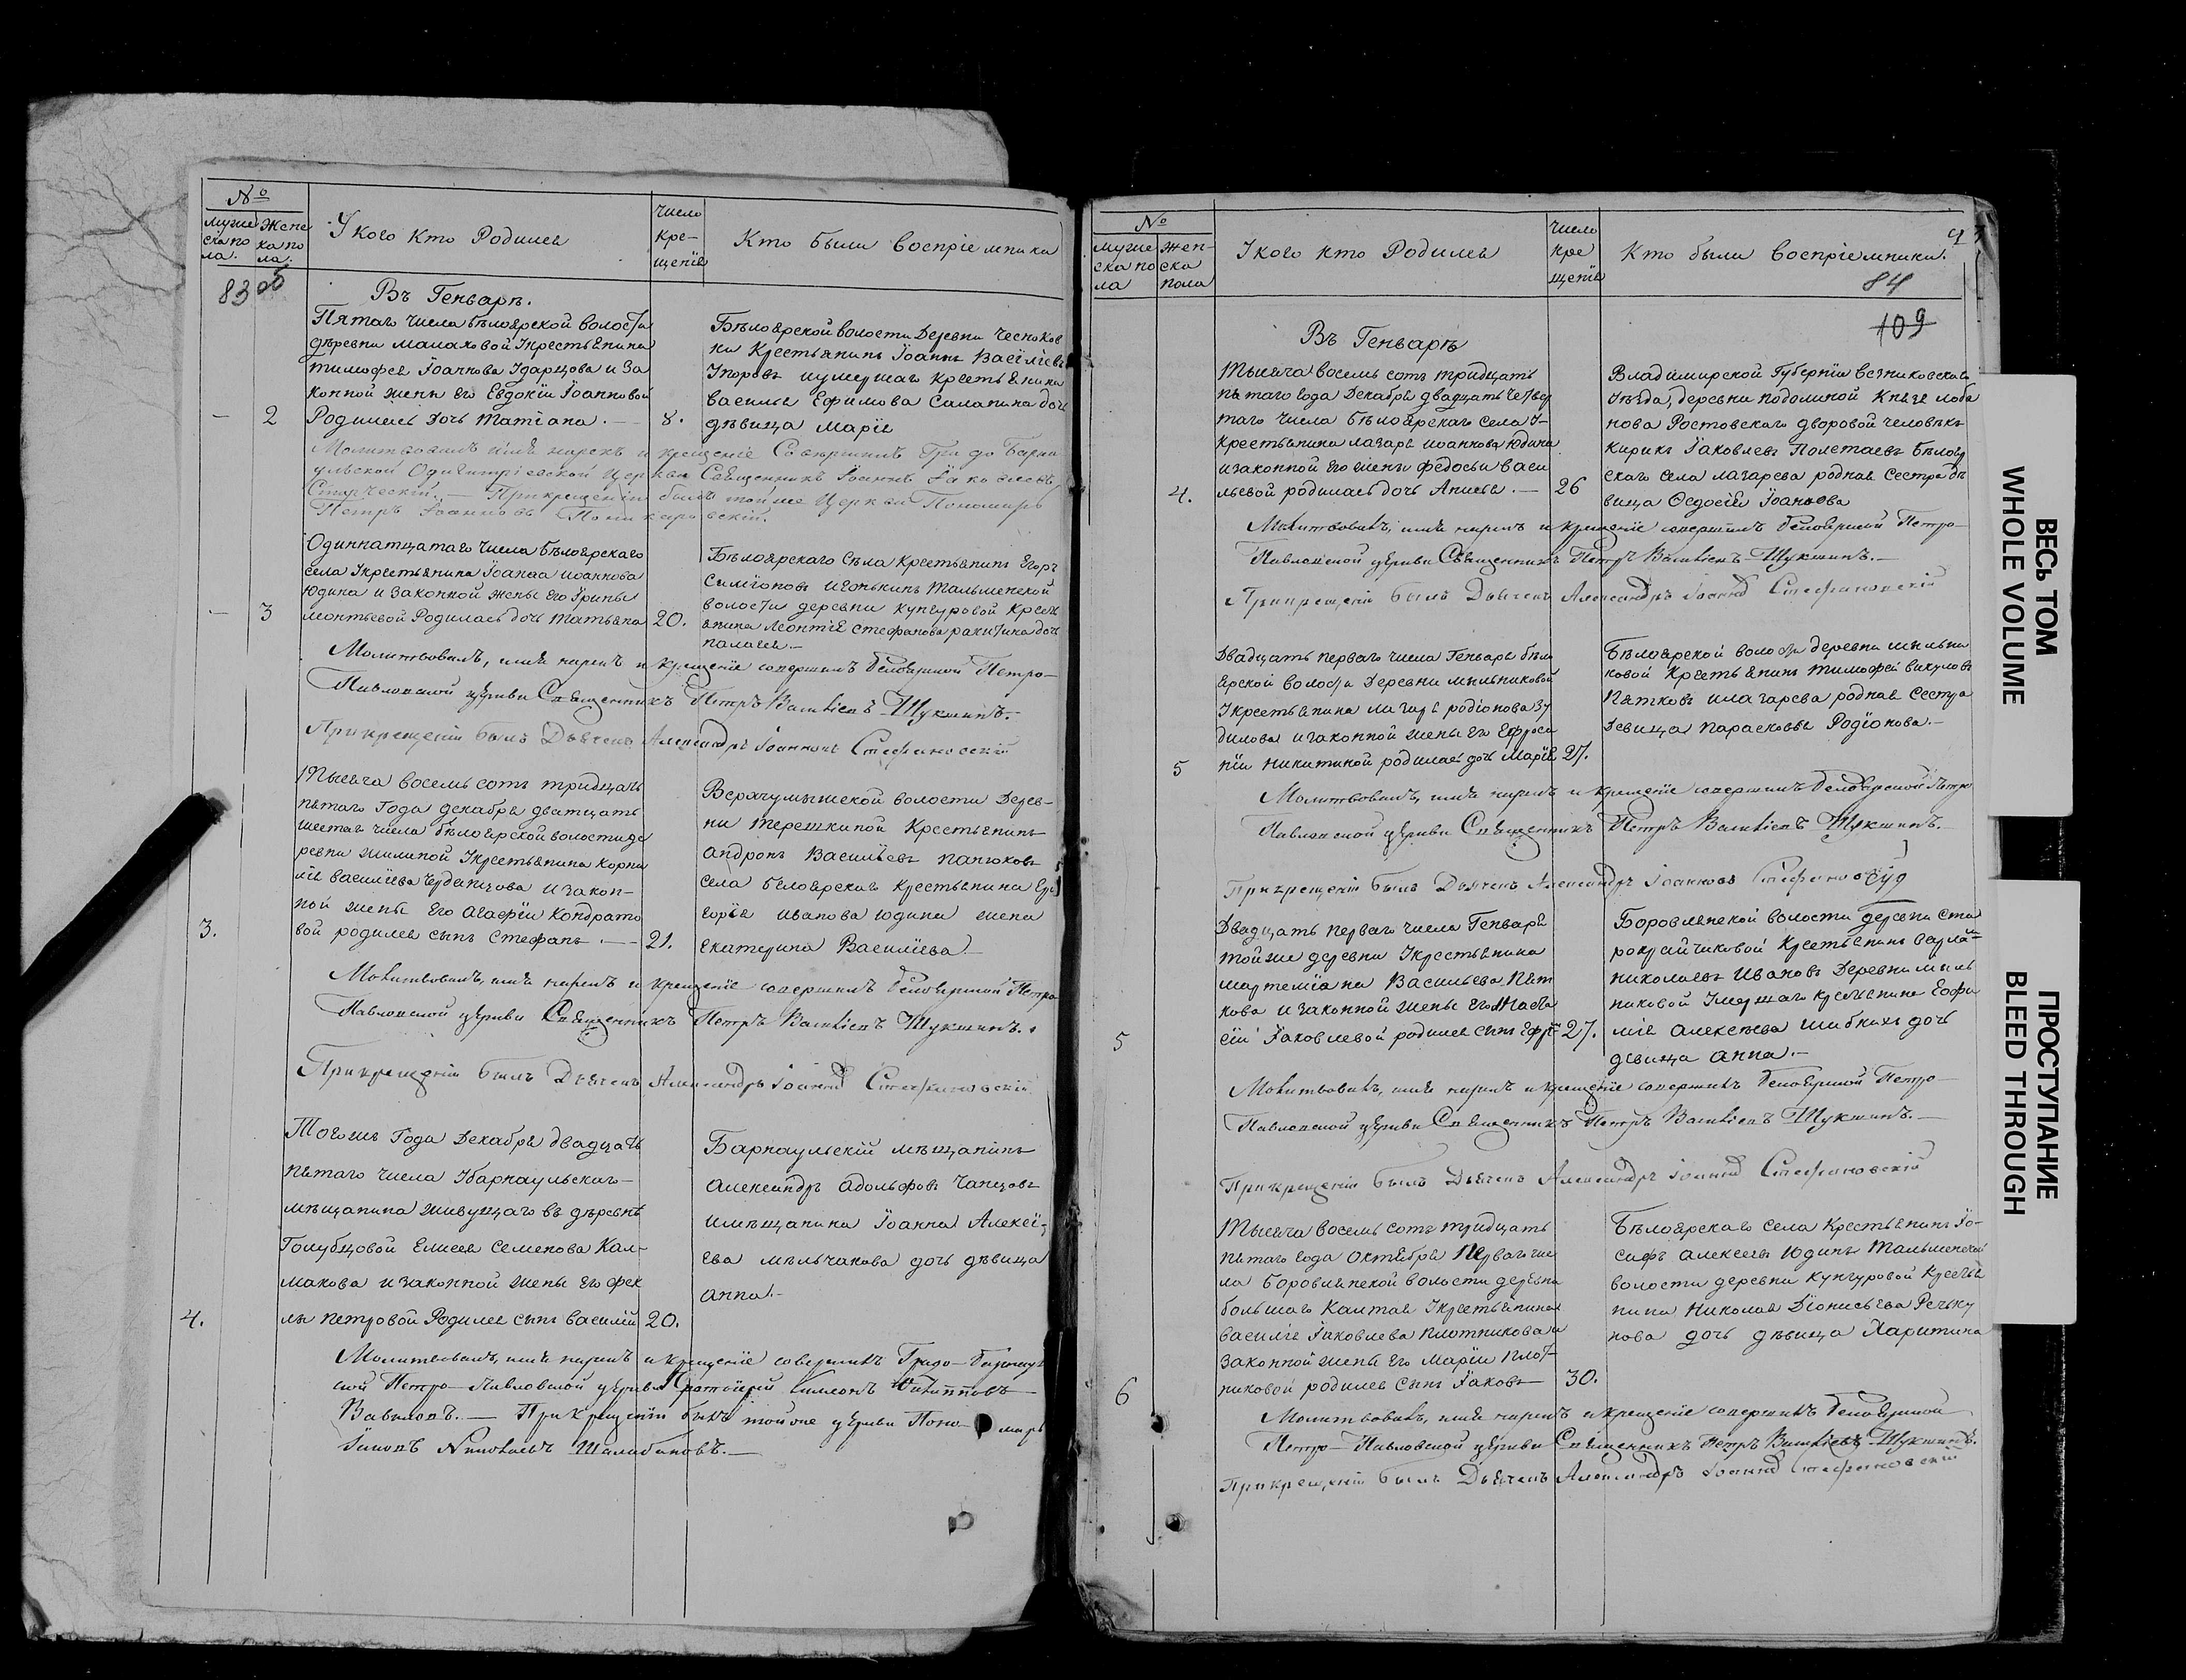 №
мужескаго пола. Женскаго пола.
У кого кто Родился
число крещенія
Кто были воспріемники
83 об
Въ Генварѣ.
Пятаго числа бѣлоярской волости
деревни малаховой Укрестьянина
тимофея Іоаннова Ударцова и за
конной жены его Евдокіи Іоанновой
2 Родилась дочь Татіана. — 8.
Бѣлоярской волости Деревни Чесноков
ки Крестьянинъ Іоаннъ Васіліевъ
умершаго крестьянина
василья Ефимова Саланина дочь
дѣвица марія
Молитвовалъ имя нарекъ и крещеніе Совершилъ Градо Барна
ульской Одигитріевской Церкви Священникъ Іоаннъ Іаковлевъ
При крещеніи былъ тойже Церкви Пономарь
Петръ Іоанновъ
Одиннатцатаго числа бѣлоярскаго
села Укрестьянина Іоанна иоаннова
Юдина и законной жены его Ірины
3 леонтьевой Родилась дочь татьяна 20.
Бѣлоярскаго Села Крестьянинъ Егоръ
Симіоновъ Игонькинъ Тальменской
волости деревни кунгуровой Кресть
янина леонтія стефанова ракитина дочь
палагея. —
Молитвовалъ, имя нарекъ и крещеніе совершилъ белоярской Петро-
Павловской церкви Священникъ Петръ Васильевъ Шукшинъ. —
При крещеніи былъ Дьячекъ Александръ Іоанновъ Стефановскій
Тысяча восемь сотъ тридцать
пятаго Года декабря дватцать
шестаго числа бѣлоярской волости де
ревни жилиной Укрестьянина Корни
лія васіліева Чердянцова и закон-
ной жены Его Агафіи Кондратье
3. вой родился сынъ Стефанъ. — 21.
Верхчумышской волости Дерев-
ни терешкиной Крестьянинъ
Андронъ Васильевъ панюковъ
села белоярскаго Крестьянина Его
горія иванова юдина жена
екатерина Василіева —
Молитвовалъ, имя нарекъ и крещеніе совершилъ белоярской Петро
Павловской церкви Священникъ Петръ Васильевъ Шукшинъ.
При крещеніи былъ Дьячекъ Александръ Іоаннов Стефановскій
Тогожъ Года Декабря двадцать
пятаго числа Убарнаульскаго —
мѣщанина живущаго въ дѣревнѣ
Голубцовой Елисея Семенова Кал-
макова и законной жены Его фек
4. лы петровой Родился сынъ василій 20.
Барнаульскій мѣщанинъ
Александръ Адольфовъ Чанцовъ
имѣщанина Іоанна Алексі-
ева мѣльчакова дочь дѣвица
анна. —
Молитвовалъ, имя нарекъ и крещеніе совершилъ Градо-барнауль
ской Петро-Павловской церкви Протоіерей Симеонъ Филипповъ
Вавиловъ. — При крещеніи былъ тойже церкви Поно марь
Николаевъ Шалабановъ. —
№
мужескаго пола женска пола
У кого кто Родился
число крещенія
Кто были воспріемники.
84
109
Въ Генварѣ
Тысяча восемь сотъ тридцать
пятаго года Декабря двадцать четвер
таго числа Бѣлоярскаго села У-
крестьянина лазаря иоаннова Юдина
и законной его жены федосьи васи
4. льевой родилась дочь Анисья. — 26
Владимирской Губерніи вязниковскаго
Уѣзда, деревни подолиной Князя лоба
нова Ростовскаго дворовой человѣкъ
Кирикъ Іаковлевъ Полетаевъ Бѣлояр
скаго села лазарева родная Сестра дѣ
вица Федосія Іоаннова
Молитвовалъ, имя нарекъ и крещеніе совершилъ белоярской Петро-
Павловской церкви Священникъ Петръ Васильевъ Шукшинъ. —
При крещеніи былъ Дьячекъ Александръ Іоаннов Стефановскій
Двадцать перваго числа Генваря бѣло
ярской волости Деревни мѣльниковой
Укрестьянина лазаря родіонова Зу
дилова и законной жены его Ефроси
5 ніи никитиной родилась дочь Марія 27.
Бѣлоярской волости деревни мѣльни
ковой Крестьянинъ тимофей викуловъ
Пятковъ илазарева родная Сестра
Девица Парасковья Родіонова. —
Молитвовалъ, имя нарекъ и крещеніе совершилъ белоярской Петро
Павловской церкви Священникъ Петръ Васильевъ Шукшинъ. —
При крещеніи былъ Дьячекъ Александръ Іоанновъ
Двадцать перваго числа Генваря
тойже деревни Укрестьянина
мартеміана Васильева Пят
кова и законной жены его
5 Іаковлевой родился сынъ 27.
Боровлянской волости деревни Ста
рокрайчиковой Крестьянинъ
николаевъ Ивановъ Деревни мѣль
никовой Умершаго крестьянина Еофи
мія Алексѣева Шибкихъ дочь
девица анна. —
Молитвовалъ, имя нарекъ и крещеніе совершилъ белоярской Петро-
Павловской церкви Священникъ Петръ Васильевъ Шукшинъ. —
При крещеніи былъ Дьячекъ Александръ Іоаннов Стефановскій
Тысяча восемь сотъ тридцать
пятаго года октября перваго чис
ла Боровлянской волости деревни
большаго Калтая Укрестьянина
василія Іаковлева плотникова и
законной жены Его Маріи плот
6 никовой родился сынъ Іаковъ 30.
Бѣлоярскаго села Крестьянинъ Іо-
сифъ Алексеевъ Юдинъ Тальменской
волости деревни кунгуровой Крестья
нина николая Діонисьева Речку
нова дочь дѣвица Харитина
Молитвовалъ, имя нарекъ и крещеніе совершилъ белоярской
Петро-Павловской церкви Священникъ Петръ Васильевъ Шукшинъ.
При крещеніи былъ Дьячекъ Александръ Іоаннов Стефановскій
ВЕСЬ ТОМ
WHOLE VOLUME
ПРОСТУПАНИЕ
BLEED THROUGH